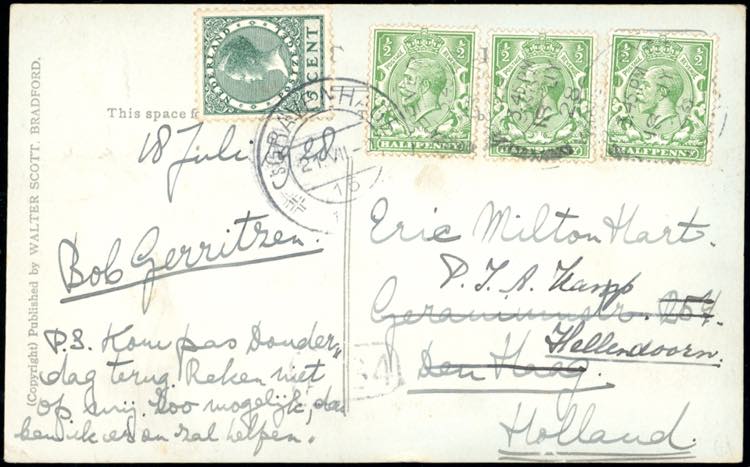 NEDERLAND
POSTZEGEL
5 CENT
1/2 1/2
HALFPENNY
1/2 1/2
HALFPENNY
1/2 1/2
HALFPENNY
's GRAVENHAGE
21.VII
This space
18 Juli 28
Bob Gerritzen.
P.S. Kom pas Donder„
dag terug. Reken niet
op mij. Zoo mogelijk, dan
ben ik er en zal helpen.
Eric Milton Hart.
P.T.A. Kamp
Geraniumstr. 254.
Hellendoorn.
Den Haag.
Holland.
(Copyright) Published by WALTER SCOTT, BRADFORD.